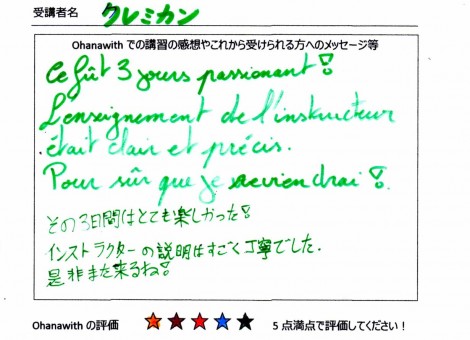 受講者名 クレミカン
Ohanawith での講習の感想やこれから受けられる方へのメッセージ等
Ce fût 3 jours passionant!
L'enseignement de l'instructeur
était clair et précis.
Pour sûr que je reviendrai!
その3日間はとても楽しかった!
インストラクターの説明はすごく丁寧でした.
是非また来るね!
Ohanawith の評価 ★★★★★ 5 点満点で評価してください!